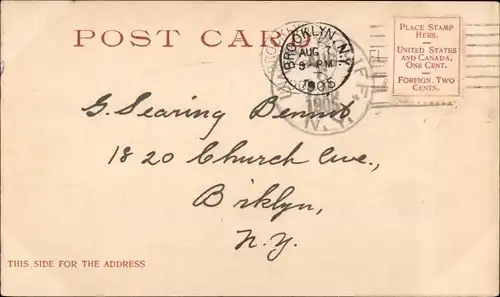 POST CARD
BROOKLYN, N.Y.
AUG
5 - PM
1905
PLACE STAMP
HERE.
UNITED STATES
AND CANADA,
ONE CENT.
FOREIGN, TWO
CENTS.
G. Searing Bennet
1820 Church Ave.,
Brklyn,
N.Y.
THIS SIDE FOR THE ADDRESS